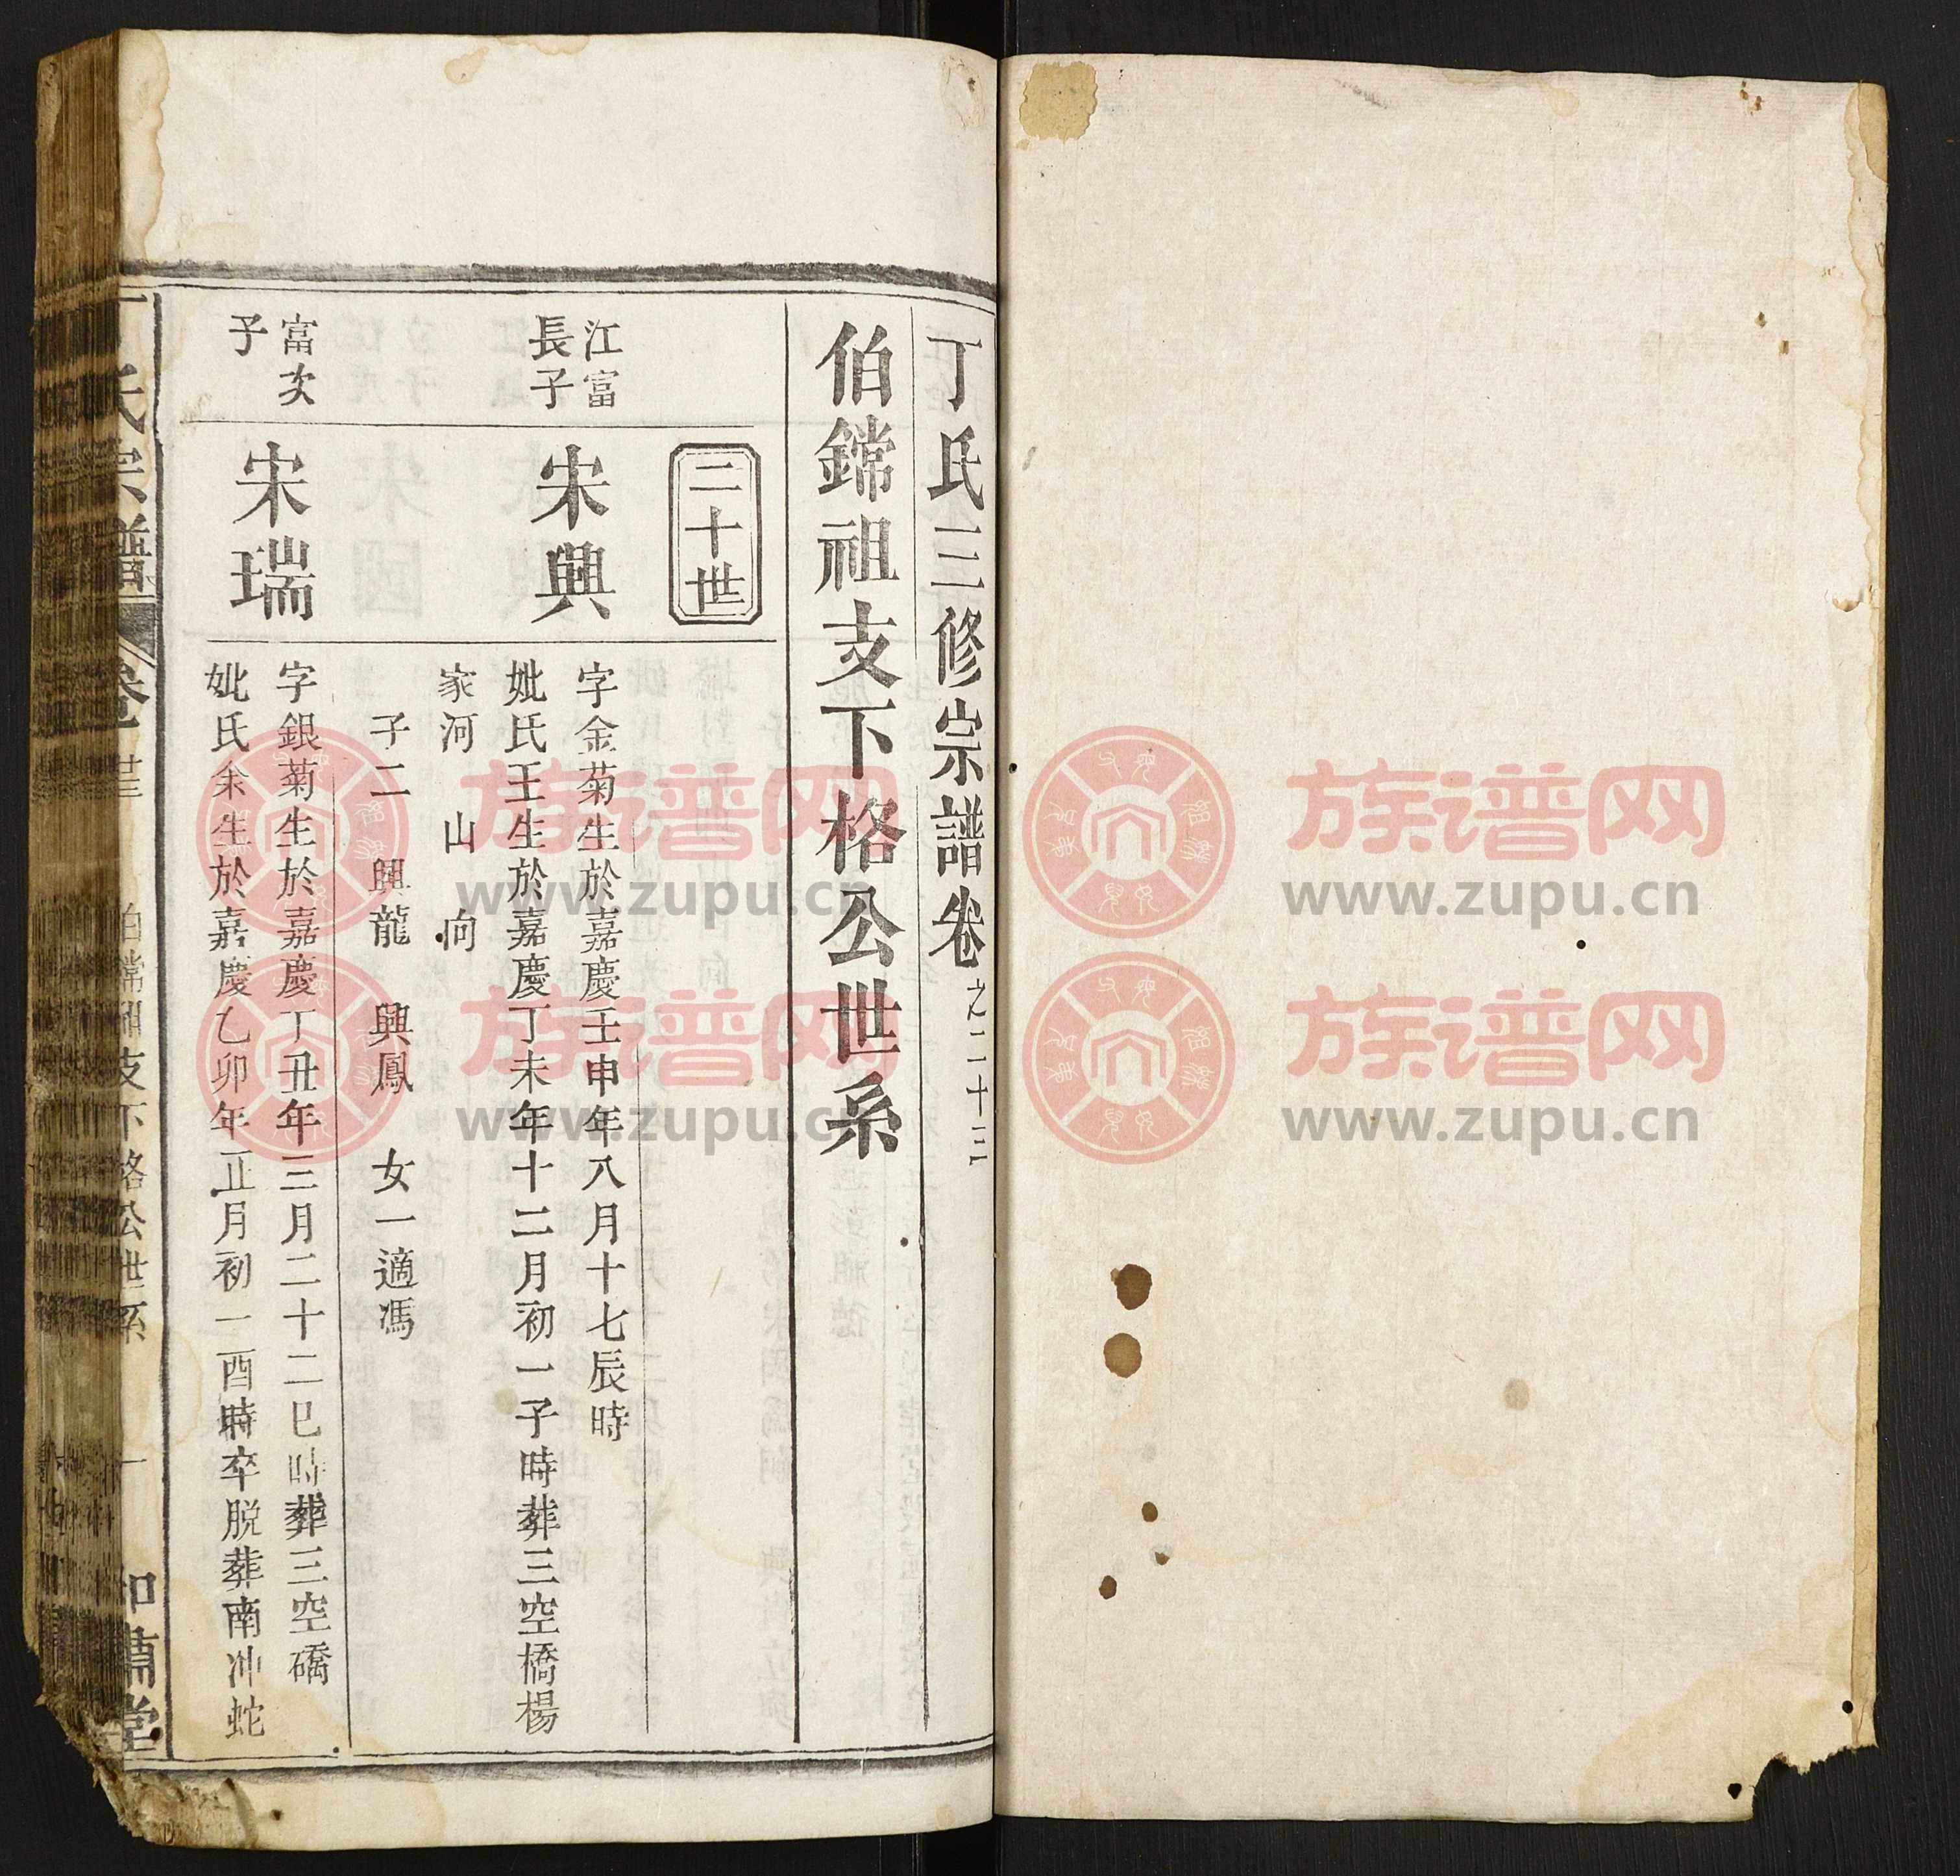 丁氏三修宗譜卷之二十三
伯鏛祖支下格公世系
二十世
江富
長子
宋興
字金菊生於嘉慶壬申年八月十七辰時
妣氏王生於嘉慶丁未年十二月初一子時葬三空橋楊
家河 山 向
子二 興龍 興鳳 女一適馮
富次
子
宋瑞
字銀菊生於嘉慶丁丑年三月二十二巳時葬三空礄
妣氏余生於嘉慶乙卯年正月初一酉時卒脱葬南冲蛇
氏宗譜
卷之 廿三
伯鏛祖支下格公世系
一
族谱网
www.zupu.cn
族谱网
www.zupu.cn
族谱网
www.zupu.cn
族谱网
www.zupu.cn